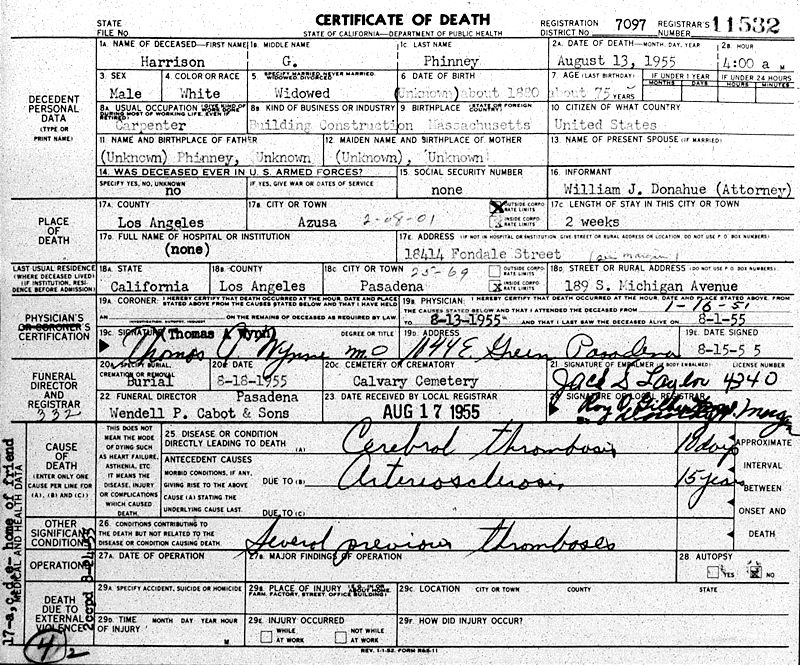 STATE
FILE NO.
CERTIFICATE OF DEATH
STATE OF CALIFORNIA—DEPARTMENT OF PUBLIC HEALTH
REGISTRATION DISTRICT NO. 7097
REGISTRAR'S NUMBER 11532
DECEDENT PERSONAL DATA (TYPE OR PRINT NAME)
1A. NAME OF DECEASED—FIRST NAME
Harrison
1B. MIDDLE NAME
G.
1C. LAST NAME
Phinney
2A. DATE OF DEATH—MONTH, DAY, YEAR
August 13, 1955
2B. HOUR
4:00 a M
3. SEX
Male
4. COLOR OR RACE
White
5. SPECIFY MARRIED, NEVER MARRIED, WIDOWED, DIVORCED
Widowed
6. DATE OF BIRTH
(Unknown) about 1880
7. AGE (LAST BIRTHDAY)
about 75 YEARS
IF UNDER 1 YEAR
MONTHS DAYS
IF UNDER 24 HOURS
HOURS MINUTES
8A. USUAL OCCUPATION (GIVE KIND OF WORK DONE DURING MOST OF WORKING LIFE, EVEN IF RETIRED)
Carpenter
8B. KIND OF BUSINESS OR INDUSTRY
Building Construction
9. BIRTHPLACE (STATE OR FOREIGN COUNTRY)
Massachusetts
10. CITIZEN OF WHAT COUNTRY
United States
11. NAME AND BIRTHPLACE OF FATHER
(Unknown) Phinney, Unknown
12. MAIDEN NAME AND BIRTHPLACE OF MOTHER
(Unknown), Unknown
13. NAME OF PRESENT SPOUSE (IF MARRIED)
14. WAS DECEASED EVER IN U. S. ARMED FORCES?
SPECIFY YES, NO, UNKNOWN
no
IF YES, GIVE WAR OR DATES OF SERVICE
15. SOCIAL SECURITY NUMBER
none
16. INFORMANT
William J. Donahue (Attorney)
PLACE OF DEATH
17A. COUNTY
Los Angeles
17B. CITY OR TOWN
Azusa 2-08-01
OUTSIDE CORPORATE LIMITS
INSIDE CORPORATE LIMITS
17C. LENGTH OF STAY IN THIS CITY OR TOWN
2 weeks
17D. FULL NAME OF HOSPITAL OR INSTITUTION
(none)
17E. ADDRESS (IF NOT IN HOSPITAL OR INSTITUTION, GIVE STREET OR RURAL ADDRESS OR LOCATION. DO NOT USE P. O. BOX NUMBERS)
18414 Fondale Street (see margin)
LAST USUAL RESIDENCE (WHERE DECEASED LIVED) (IF INSTITUTION, RESIDENCE BEFORE ADMISSION)
18A. STATE
California
18B. COUNTY
Los Angeles
18C. CITY OR TOWN 25-69
Pasadena
OUTSIDE CORPORATE LIMITS
X INSIDE CORPORATE LIMITS
18D. STREET OR RURAL ADDRESS (DO NOT USE P. O. BOX NUMBERS)
189 S. Michigan Avenue
PHYSICIAN'S OR CORONER'S CERTIFICATION
19A. CORONER: I HEREBY CERTIFY THAT DEATH OCCURRED AT THE HOUR, DATE AND PLACE STATED ABOVE FROM THE CAUSES STATED BELOW AND THAT I HAVE HELD
AN ON THE REMAINS OF DECEASED AS REQUIRED BY LAW.
19B. PHYSICIAN: I HEREBY CERTIFY THAT DEATH OCCURRED AT THE HOUR, DATE AND PLACE STATED ABOVE, FROM
THE CAUSES STATED BELOW AND THAT I ATTENDED THE DECEASED FROM 1-16-51
TO 8-13-1955 AND THAT I LAST SAW THE DECEASED ALIVE ON 8-1-55
19C. SIGNATURE
DEGREE OR TITLE
Thomas A Wynne M.D.
19D. ADDRESS
1044 E. Green Pasadena
19E. DATE SIGNED
8-15-55
FUNERAL DIRECTOR AND REGISTRAR
332
20A. SPECIFY BURIAL, CREMATION OR REMOVAL
Burial
20B. DATE
8-18-1955
20C. CEMETERY OR CREMATORY
Calvary Cemetery
21. SIGNATURE OF EMBALMER (IF BODY EMBALMED) LICENSE NUMBER
Jack S Taylor 4240
22. FUNERAL DIRECTOR
Pasadena
Wendell P. Cabot & Sons
23. DATE RECEIVED BY LOCAL REGISTRAR
AUG 17 1955
24. SIGNATURE OF LOCAL REGISTRAR
CAUSE OF DEATH
(ENTER ONLY ONE CAUSE PER LINE FOR (A), (B) AND (C))
THIS DOES NOT MEAN THE MODE OF DYING SUCH AS HEART FAILURE, ASTHENIA, ETC. IT MEANS THE DISEASE, INJURY OR COMPLICATIONS WHICH CAUSED DEATH.
25. DISEASE OR CONDITION DIRECTLY LEADING TO DEATH (A) Cerebral thrombosis 10 days
ANTECEDENT CAUSES
MORBID CONDITIONS, IF ANY, GIVING RISE TO THE ABOVE CAUSE (A) STATING THE UNDERLYING CAUSE LAST.
DUE TO (B) Arteriosclerosis 15 years
DUE TO (C)
APPROXIMATE INTERVAL BETWEEN ONSET AND DEATH
OTHER SIGNIFICANT CONDITIONS
26. CONDITIONS CONTRIBUTING TO THE DEATH BUT NOT RELATED TO THE DISEASE OR CONDITION CAUSING DEATH.
Several previous thromboses
OPERATIONS
27A. DATE OF OPERATION
27B. MAJOR FINDINGS OF OPERATION
28. AUTOPSY
YES
X NO
DEATH DUE TO EXTERNAL VIOLENCE
29A. SPECIFY ACCIDENT, SUICIDE OR HOMICIDE
29B. PLACE OF INJURY (E.G., IN OR ABOUT HOME, FARM, FACTORY, STREET, OFFICE BUILDING)
29C. LOCATION CITY OR TOWN COUNTY STATE
29D. TIME OF INJURY MONTH DAY YEAR HOUR M
29E. INJURY OCCURRED
WHILE AT WORK
NOT WHILE AT WORK
29F. HOW DID INJURY OCCUR?
REV. 1-1-52. FORM R&S-11
17-a,c,d,e- home of friend
MEDICAL AND HEALTH DATA
4
2